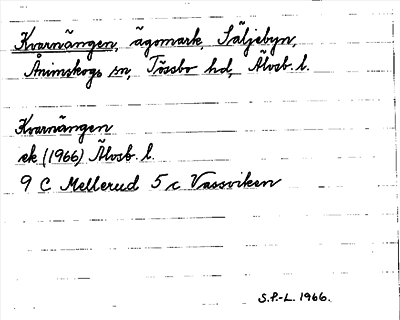 Kvarnängen, ägomark, Säljebyn,
Ånimskogs sn, Tössbo hd, Älvsb. l.
Kvarnängen
ek (1966) Älvsb l.
9 C Mellerud 5 c Vassviken
S.P.-L. 1966.